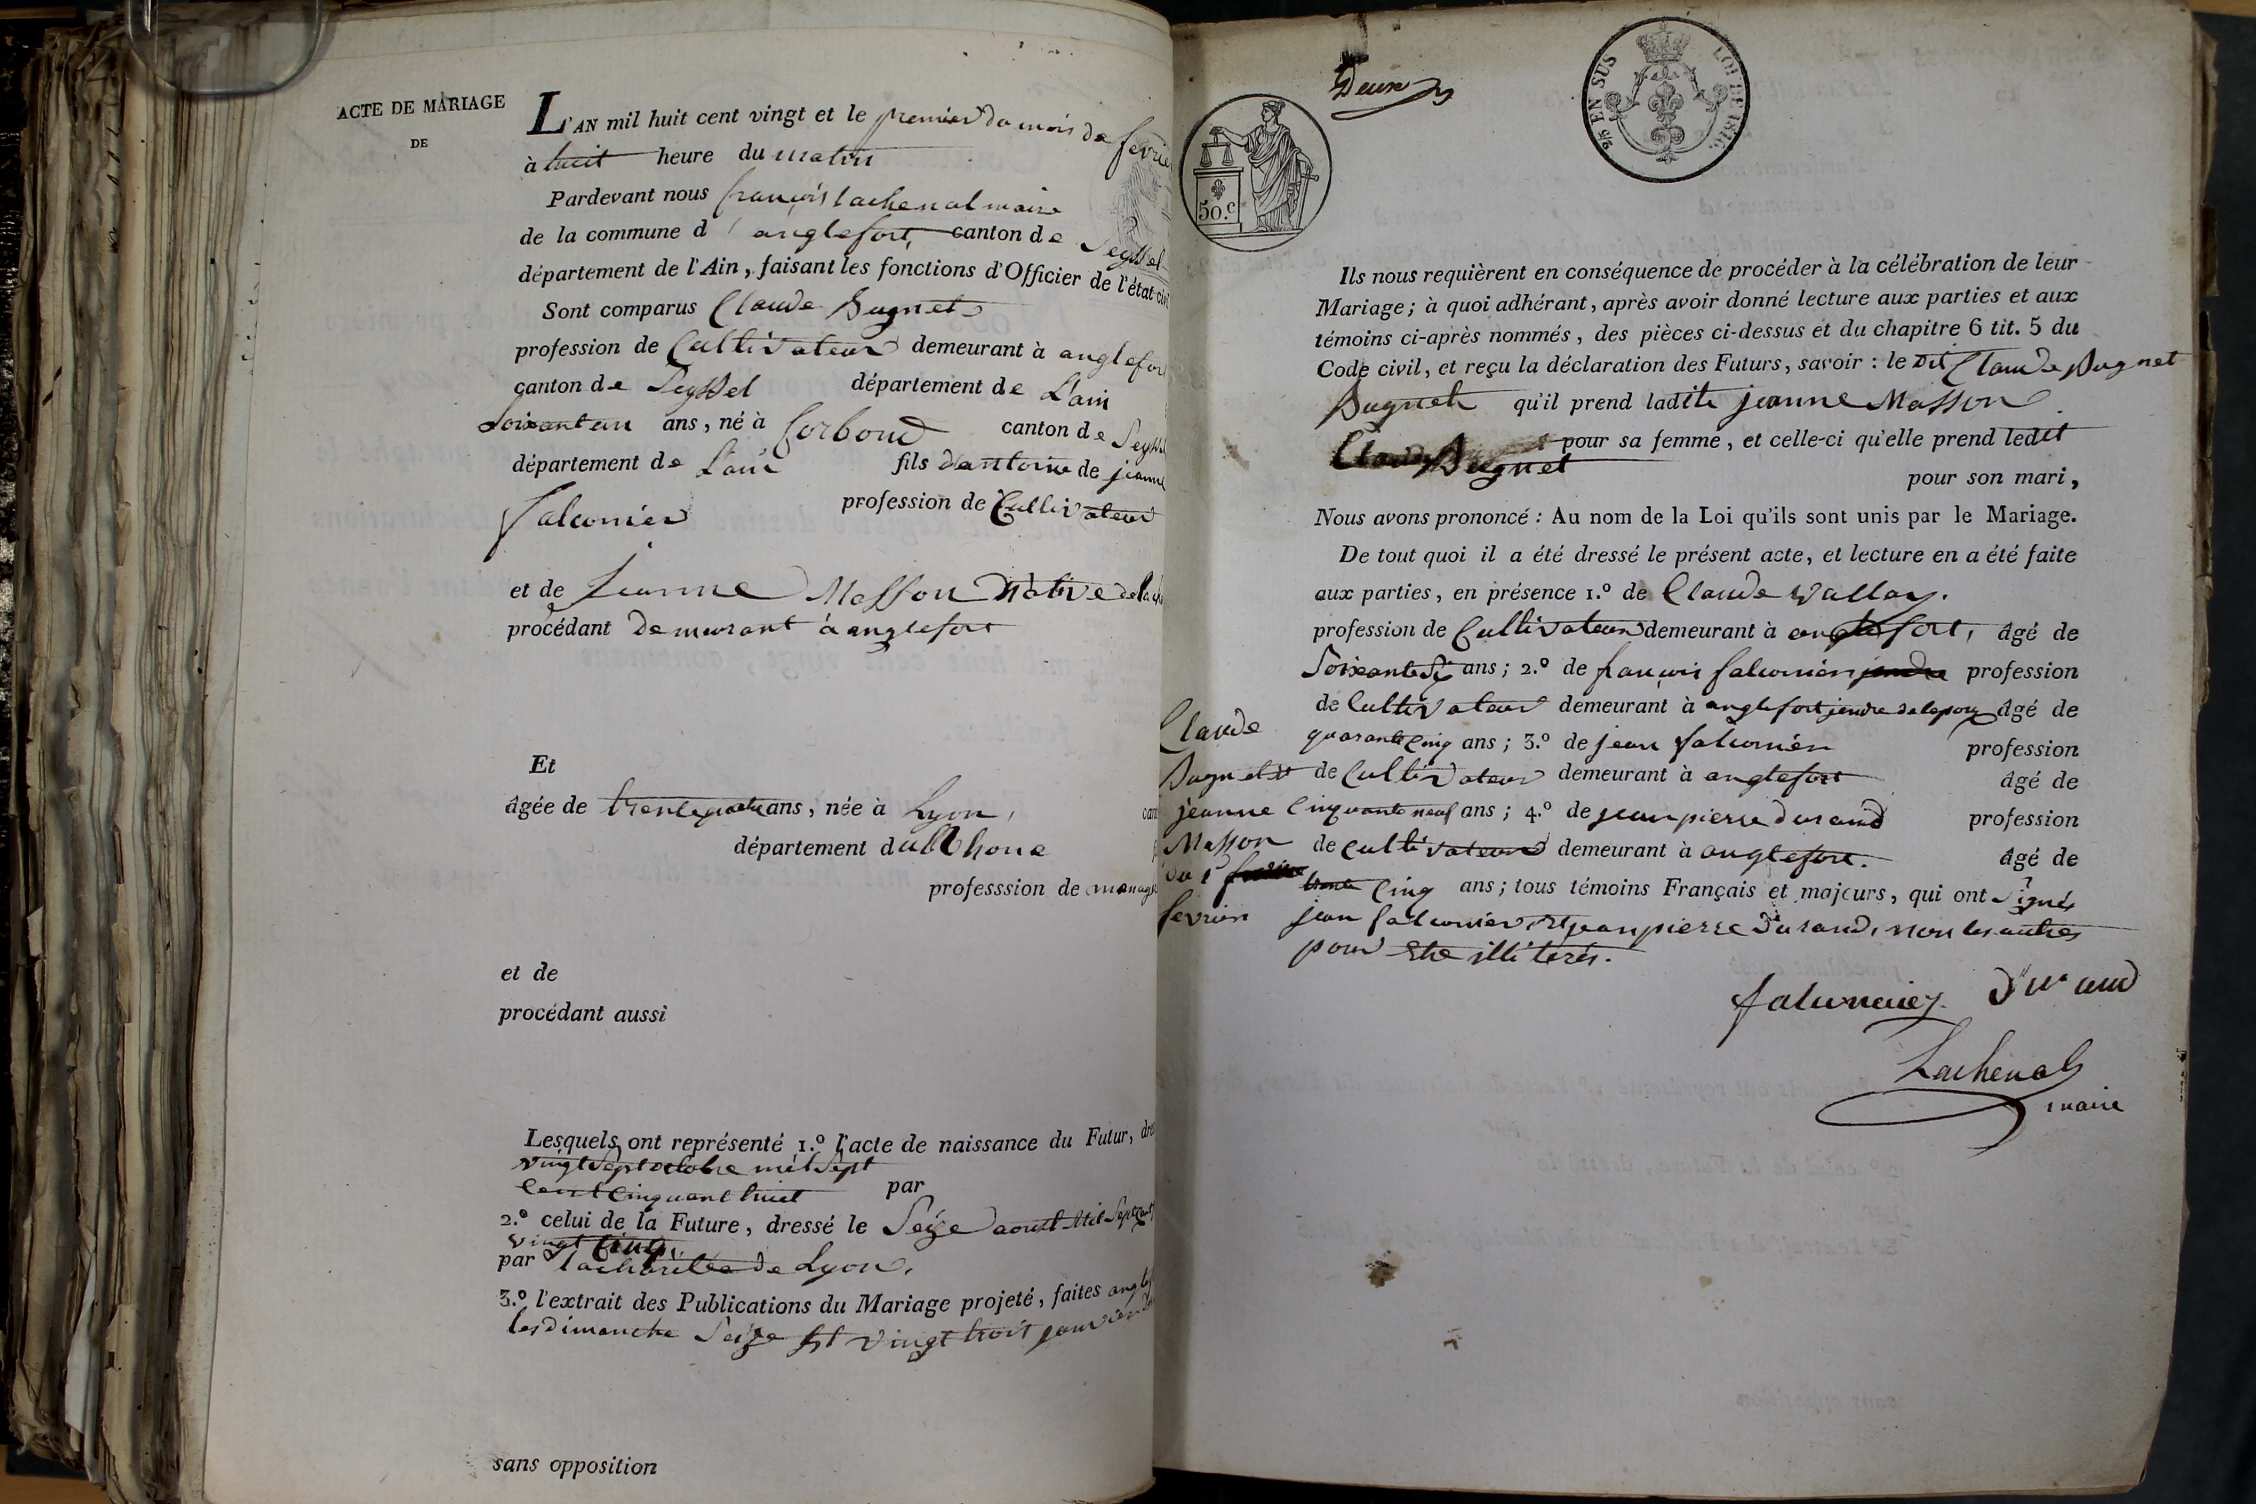 ACTE DE MARIAGE
DE
L'AN mil huit cent vingt et le premier du mois de fevrier
à huit heure du matin
Pardevant nous françois lachenal maire
de la commune d'anglefort, canton de Seyssel
département de l'Ain, faisant les fonctions d'Officier de l'état civil
Sont comparus Claude Bugnet
profession de Cultivateur demeurant à anglefort
canton de Seyssel département de L'ain
Soixantun ans, né à Corbond canton de Seyssel
département de L'ain fils dantoine de jeanne
falconier profession de Cultivateur
et de Jeanne Masson Native de
procédant demeurant à anglefort
Et
âgée de trentequatre ans, née à Lyon,
département du Rhone
professsion de menage
et de
procédant aussi
Lesquels ont représenté 1.º l'acte de naissance du Futur,
vingt sept octobre mil sept
cent cinquant huit par
2.º celui de la Future, dressé le Seize aoust Mil Sept cent
vingt cinq,
par la charitée de Lyon,
3.º l'extrait des Publications du Mariage projeté, faites
les dimanche Seize Et vingt trois janvier
sans opposition
Deux
50.c
2/5 EN SUS LOI DE 1816.
Ils nous requièrent en conséquence de procéder à la célébration de leur
Mariage; à quoi adhérant, après avoir donné lecture aux parties et aux
témoins ci-après nommés, des pièces ci-dessus et du chapitre 6 tit. 5 du
Code civil, et reçu la déclaration des Futurs, savoir : le dit Claude Bugnet
Bugnet qu'il prend ladite jeanne Masson
pour sa femme, et celle-ci qu'elle prend ledit
Claude Bugnet
pour son mari,
Nous avons prononcé : Au nom de la Loi qu'ils sont unis par le Mariage.
De tout quoi il a été dressé le présent acte, et lecture en a été faite
aux parties, en présence 1.º de Claude Vallay.
profession de Cultivateur demeurant à anglefort, âgé de
Soixante Six ans; 2.º de françois falconier profession
de Cultivateur demeurant à anglefort jendre âgé de
quarante Cinq ans; 3.º de jean falconier profession
de Cultivateur demeurant à anglefort âgé de
Cinquante neuf ans; 4.º de jean pierre durand profession
de cultivateur demeurant à anglefort. âgé de
trente Cinq ans; tous témoins Français et majeurs, qui ont Signés
jean falconier, Et jean pierre durand, non les autres
pour Etre illiterés.
Claude
Bugnet Et
jeanne
Masson
du 1r
fevrier
falconnier durand
Lachenal
maire